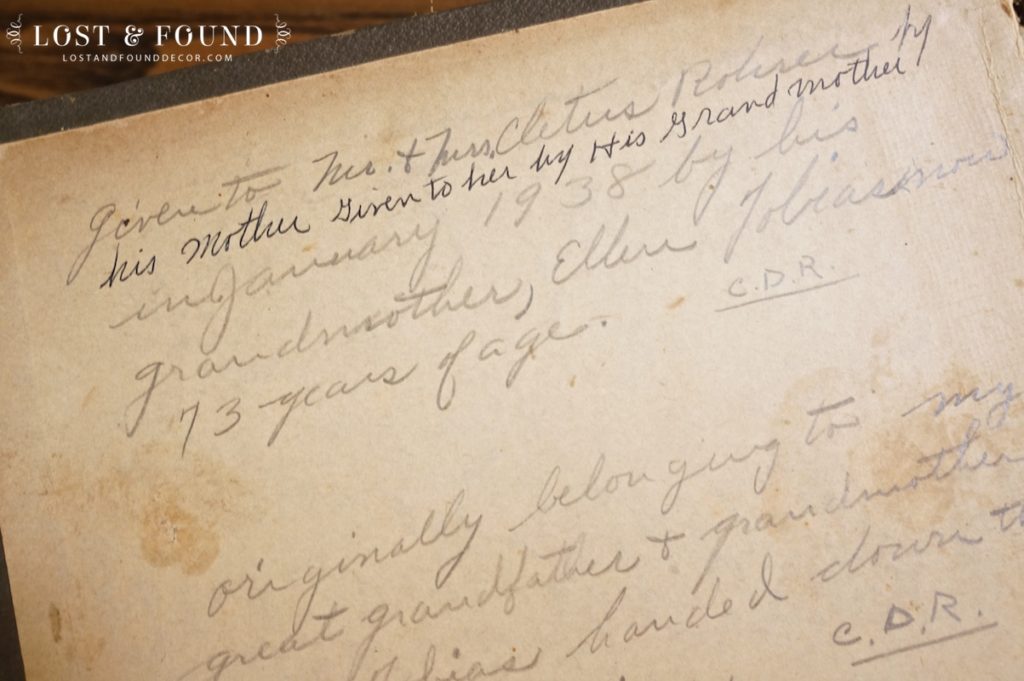 LOST & FOUND
LOSTANDFOUNDDECOR.COM
Given to Mr. & Mrs. Cletus Rohrer by
his Mother Given to her by His Grandmother
in January 1938 by his
grandmother, Ellen Tobias now
73 years of age.
C.D.R.
originally belonging to my
great grandfather & grandmother
Tobias handed down to
C.D.R.